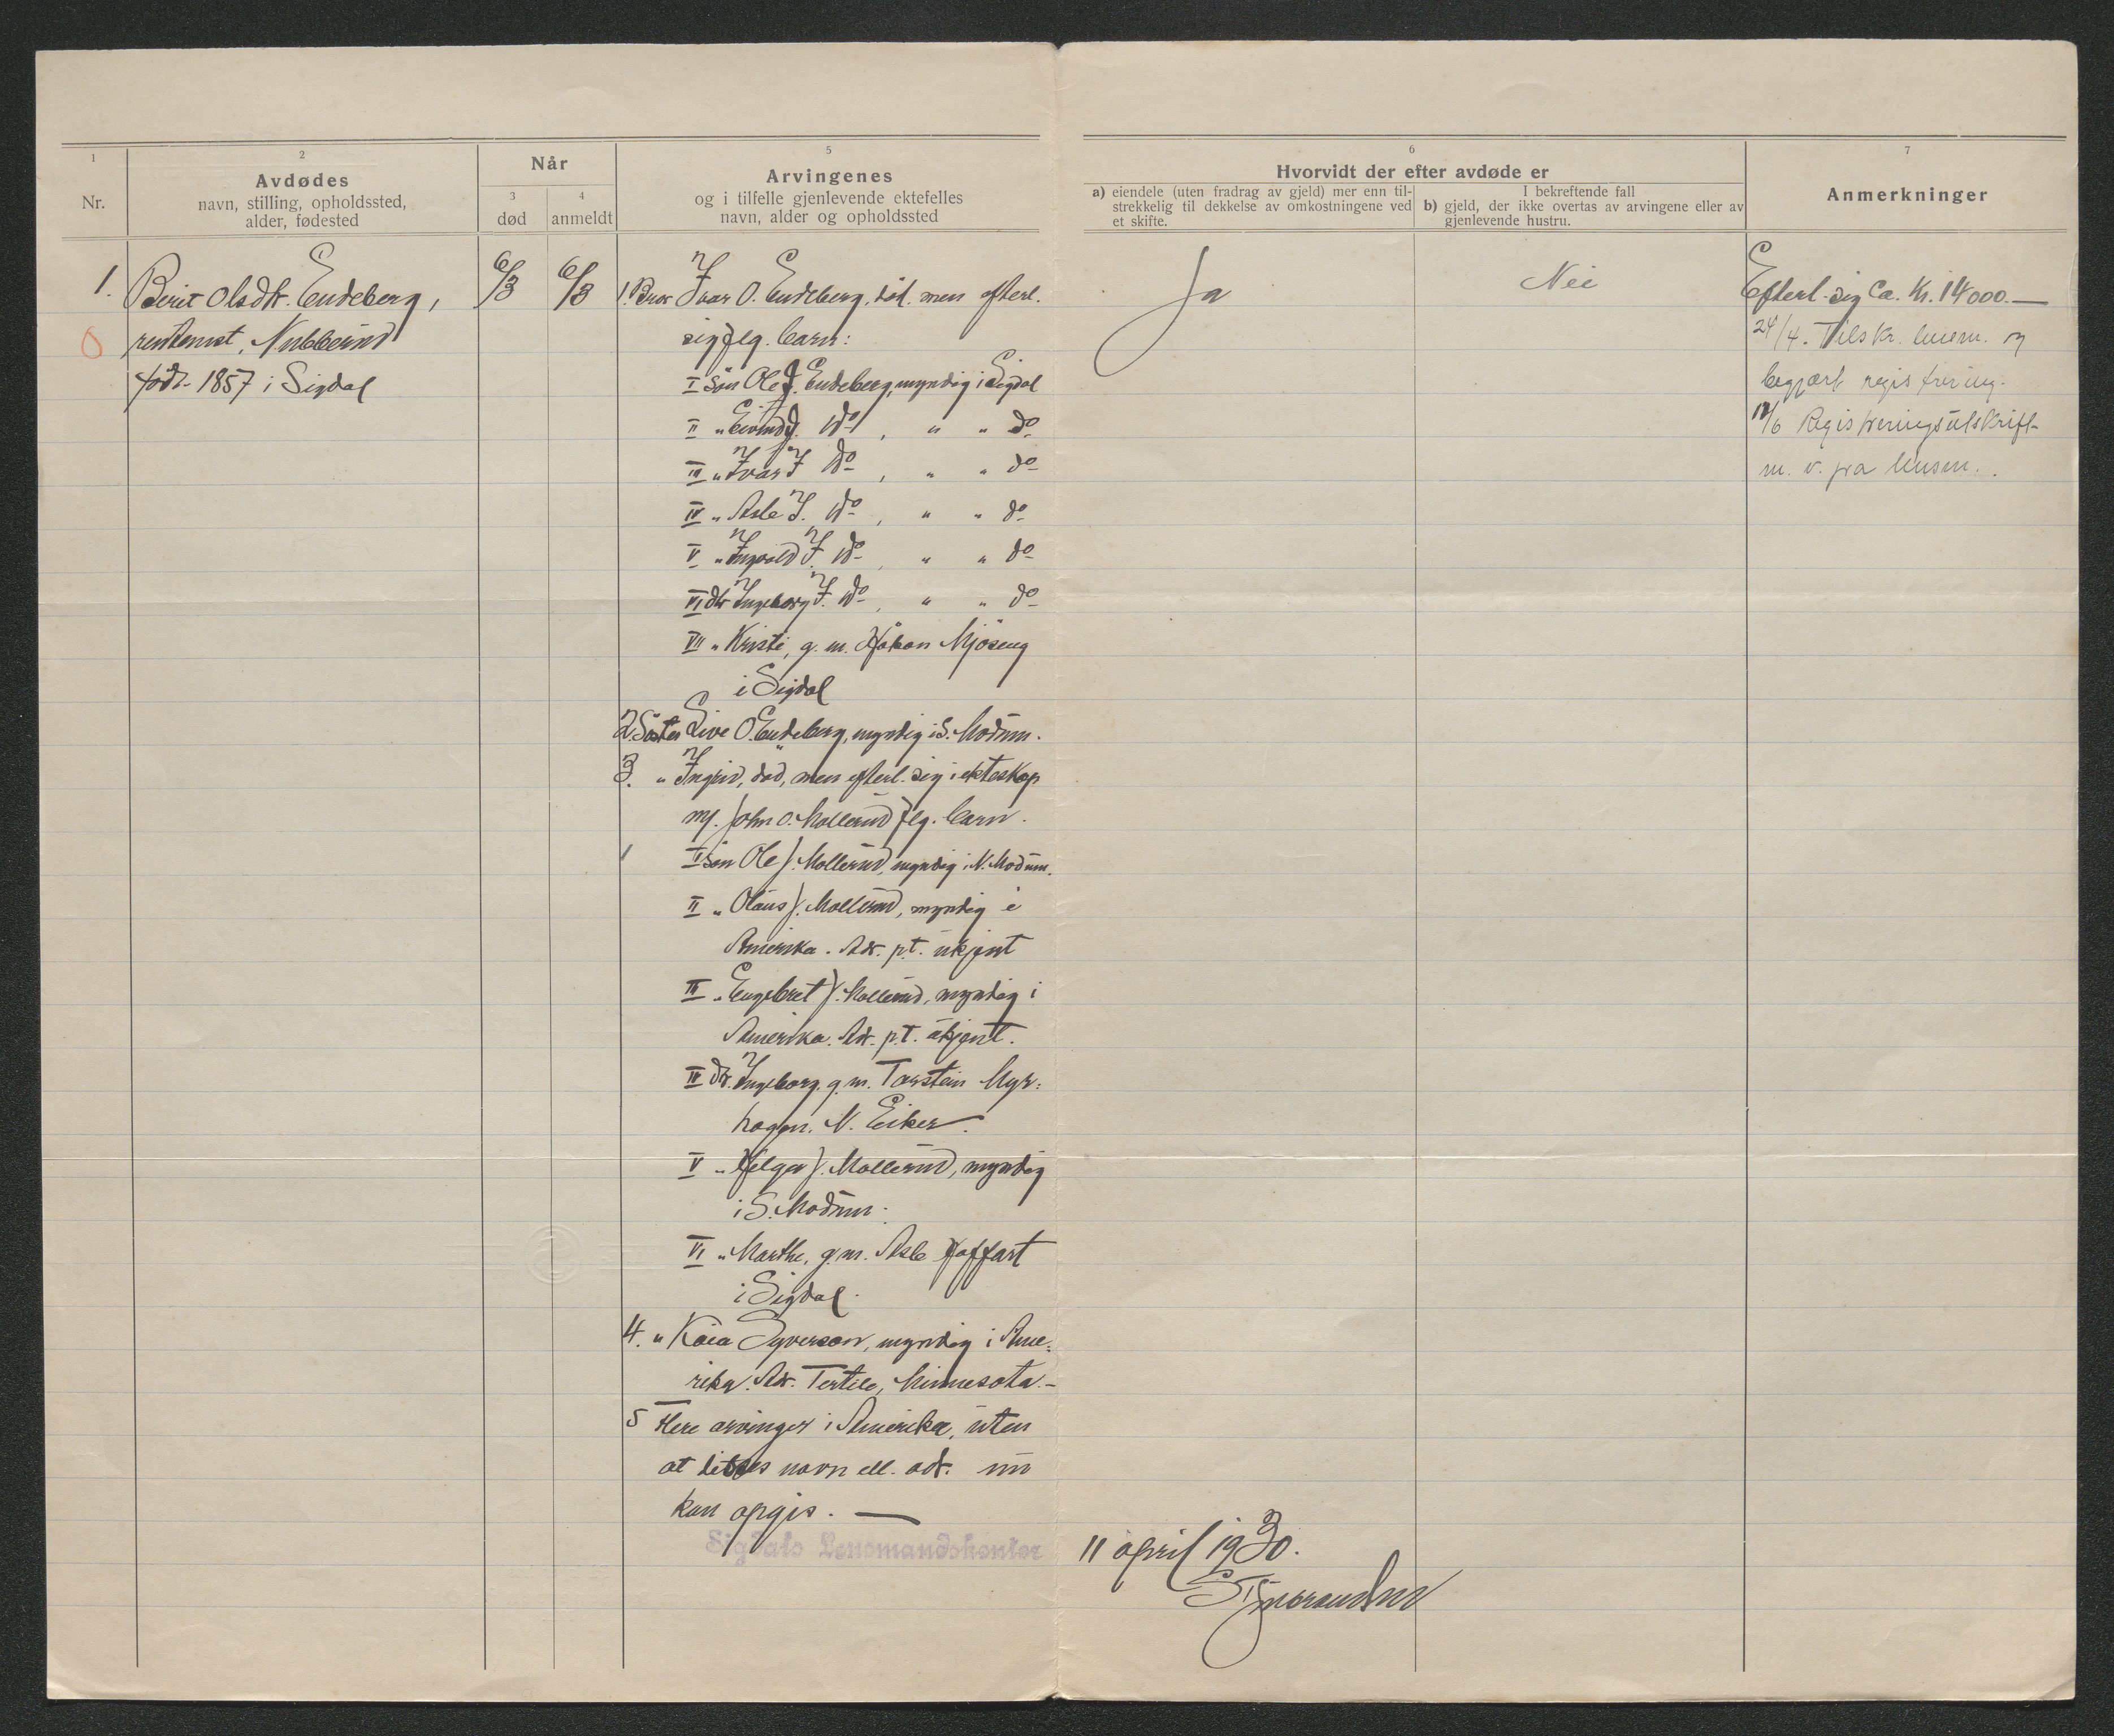 1
Nr.
2
Avdødes
navn, stilling, opholdssted,
alder, fødested
Når
3
død
4
anmeldt
5
Arvingenes
og i tilfelle gjenlevende ektefelles
navn, alder og opholdssted
6
Hvorvidt der efter avdøde er
a) eiendele (uten fradrag av gjeld) mer enn til-
strekkelig til dekkelse av omkostningene ved
et skifte.
I bekreftende fall
b) gjeld, der ikke overtas av arvingene eller av
gjenlevende hustru.
7
Anmerkninger
1. Berit Olsdtr. Endeberg,
født 1857 i Sigdal
6/3
6/3
1. Bror Ivar O. Endeberg, död. men efterl.
sig flg. barn:
I sön Ole I. Endeberg, myndig i Sigdal
II " Eivind I. do, " " do
III " Ivar I do, " " do
IV " Asle I. do, " " do
V " Ingvald I. do, " " do
VI dtr Ingeborg I. do, " " do
VII " Kristi, g. m. Håkon Mjöseng
i Sigdal
2. Söster Live O. Endeberg, myndig i S. Modum.
3. " Ingrid, död, men efterl. sig i ekteskap
m/ John O. Mollerud flg. barn.
I sön Ole J. Mollerud, myndig i N. Modum.
II " Olaus J. Mollerud, myndig i
Amerika. Adr. p.t. ukjent
III " Engebret J. Mollerud, myndig i
Amerika. Adr. p.t. ukjent.
IV dtr. Ingeborg. g. m. Torstein Myr-
hagen. N. Eiker.
V " Helga J. Mollerud, myndig
i S. Modum.
VI " Marthe, g. m. Asle Hoffart
i Sigdal.
4. " Kaia Syverson, myndig i Ame-
rika. Adr. Tertile, Minnesota.-
5 Flere arvinger i Amerika, uten
at disses navn ell. adr. nu
kan opgis. —
Sigdals Lensmandskontor
11 april 1930.
Ja
Nei
Efterl. sig ca. kr. 14000.—
24/4. Tilskr. lensm. og
begjært registrering.
17/6 Registreringsutskrift
m. v. fra lensm.